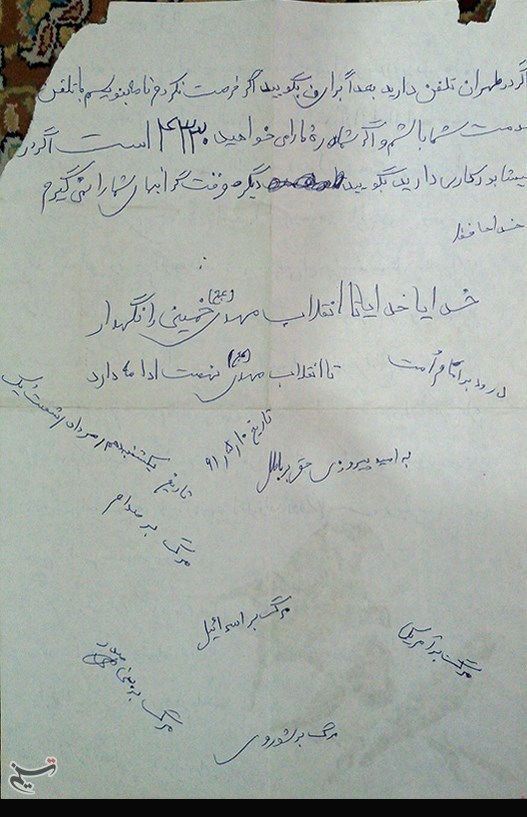 اگر در طهران تلفن دارید بعداً برا بگویید اگر فرصت نکردم نامه بنویسم با تلفن
خدمت شما باشم و اگر شماره ما را می خواهید ۴۳۳۰ است اگر در
کاری دارید بگویید دیگر وقت گرانبهای شما را نمی گیرم
خداحافظ
خدایا خدایا تا انقلاب مهدی (عج) خمینی را نگهدار
تا انقلاب مهدی (عج) نهضت ادامه دارد
درود بر امام امت
به امید پیروزی حق بر باطل
تاریخ ۶۱/۵/۱۰
تاریخ یکشنبه دهم مرداد شصت یک
مرگ بر صدام
مرگ بر اسرائیل
مرگ بر آمریکا
مرگ بر بنی صدر
مرگ بر شوروی
تسنیم